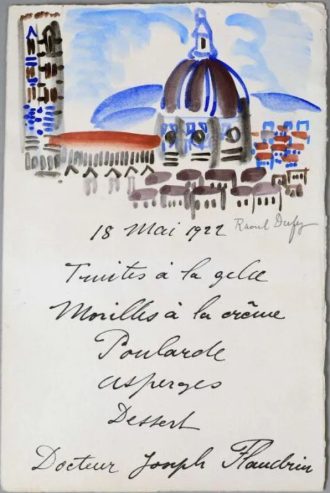 18 Mai 1922 Raoul Dufy
Truites à la gelée
Morilles à la crême
Poularde
asperges
Dessert
Docteur Joseph Flandrin